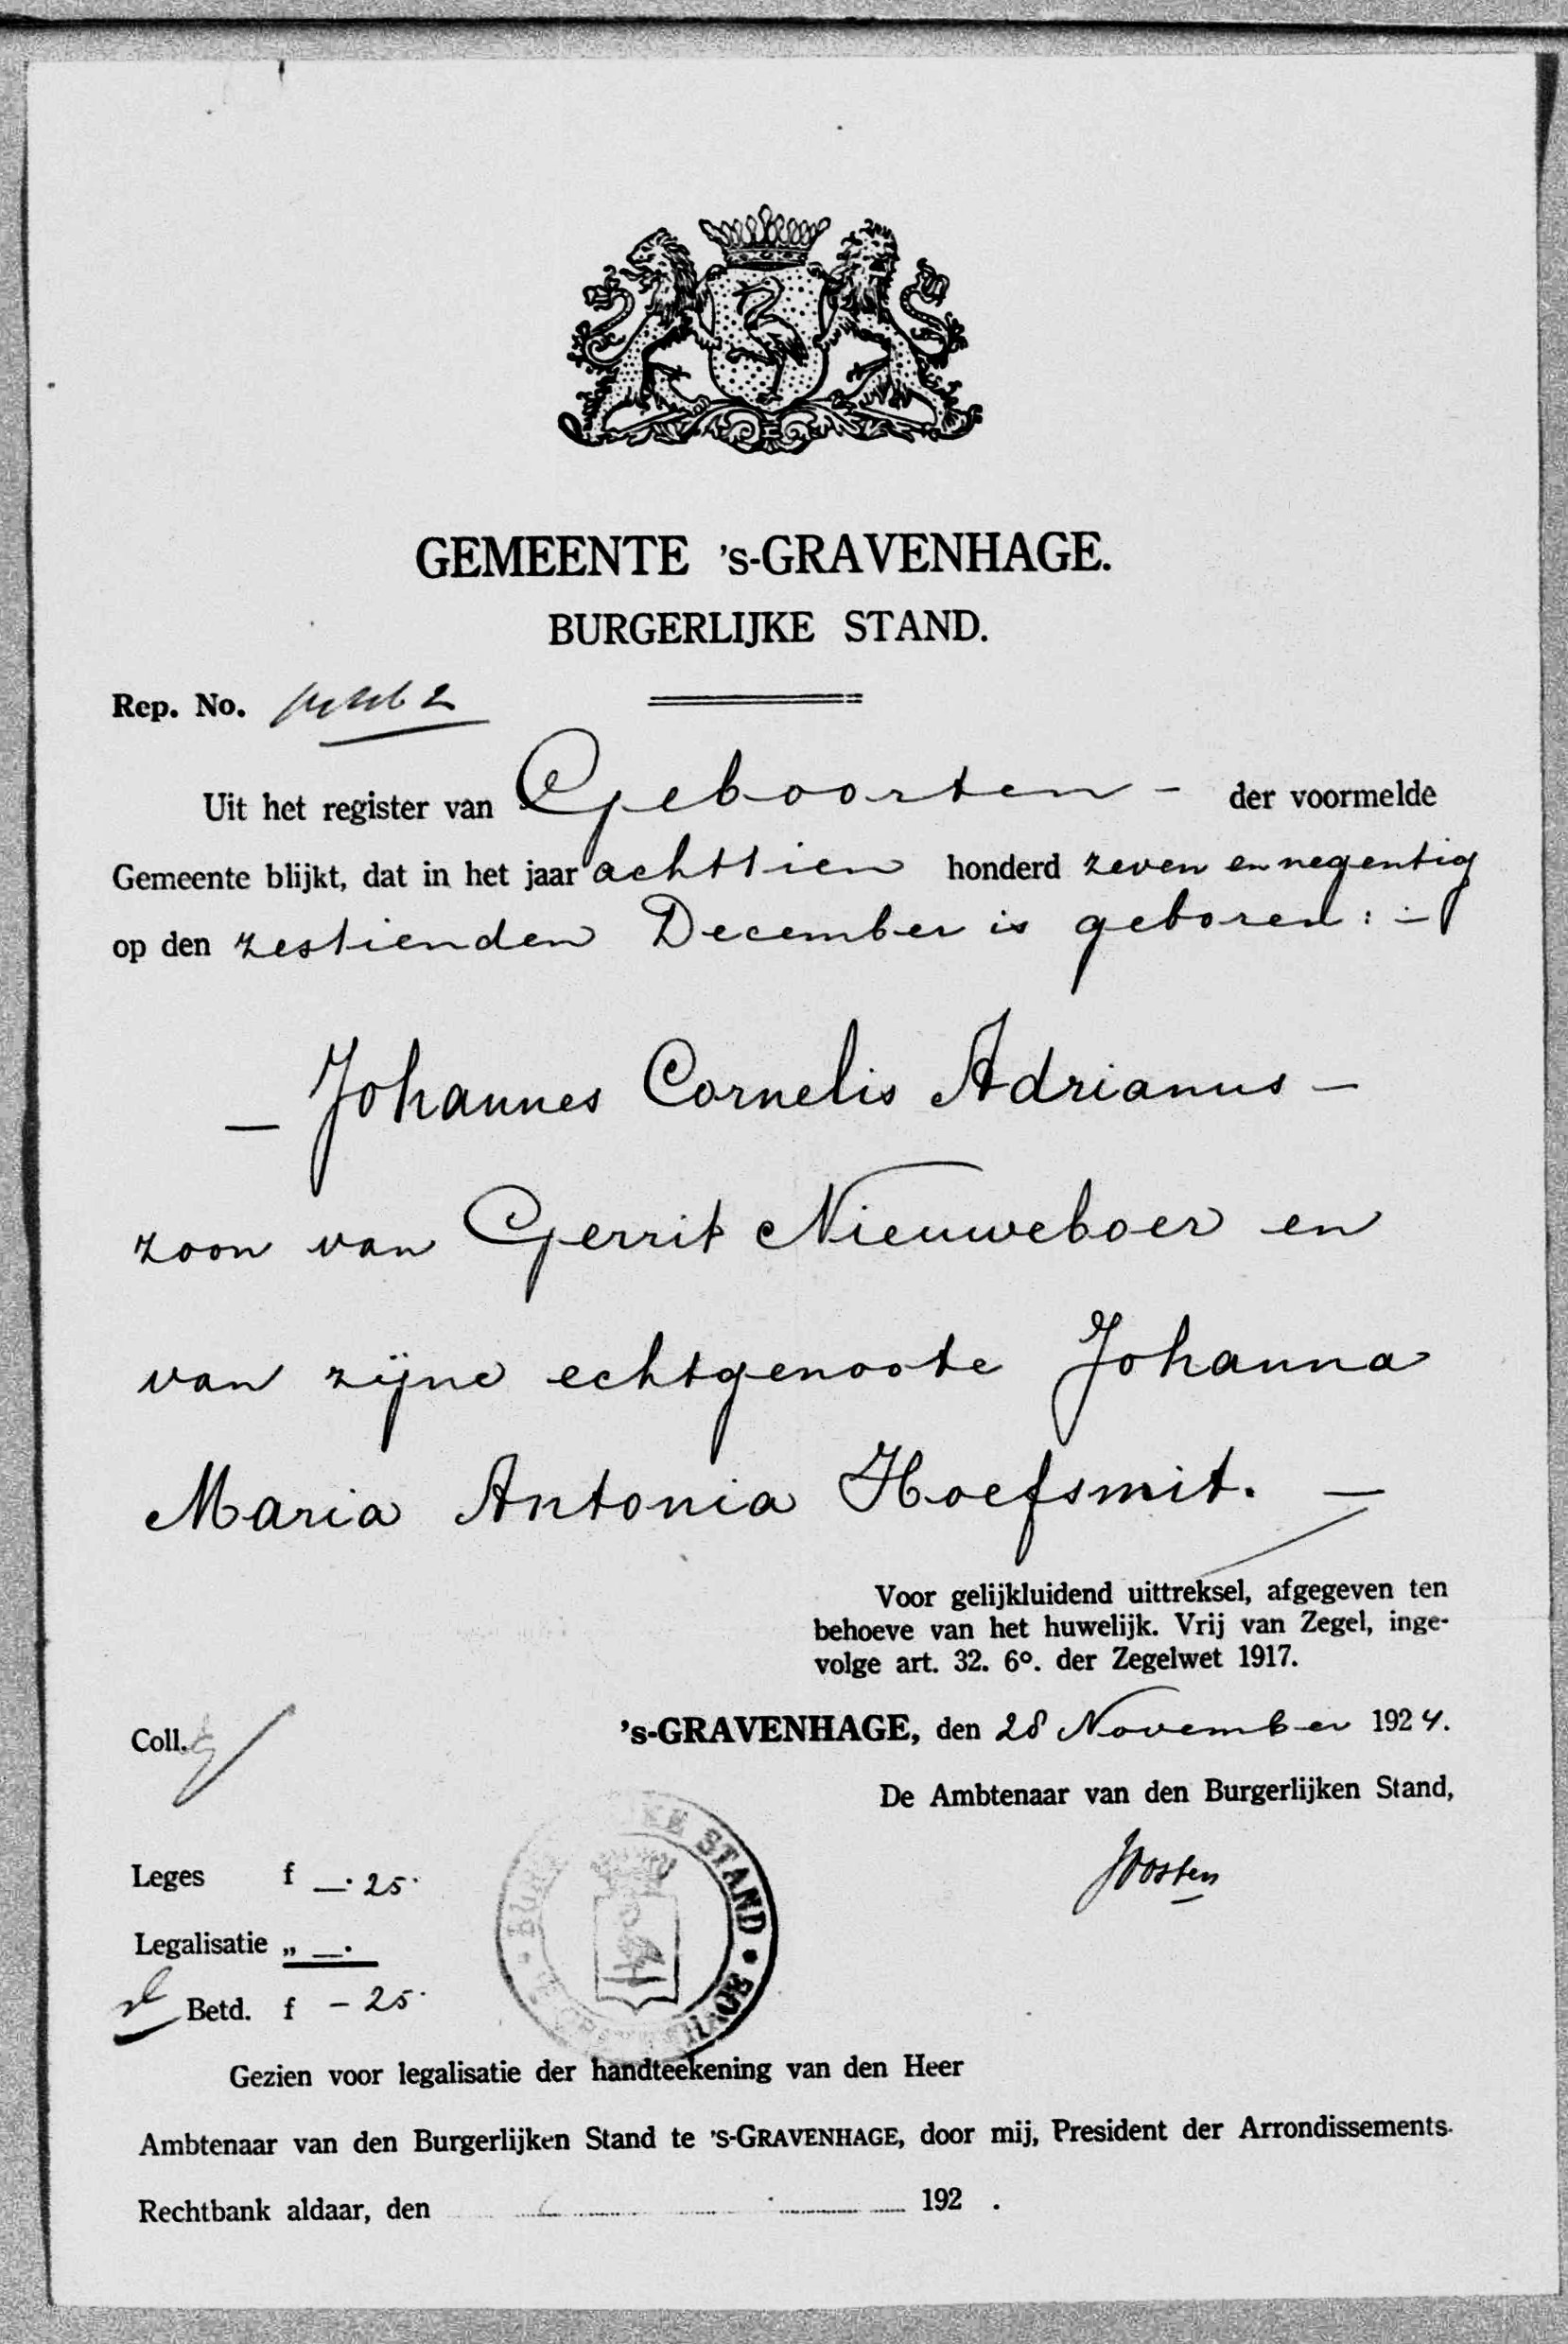 GEMEENTE 's-GRAVENHAGE.
BURGERLIJKE STAND.
Rep. No.
Uit het register van Geboorten - der voormelde
Gemeente blijkt, dat in het jaar achttien honderd zeven en negentig
op den zestienden December is geboren: -
- Johannes Cornelis Adrianus -
zoon van Gerrit Nieuweboer en
van zijne echtgenoote Johanna
Maria Antonia Hoefsmit. -
Voor gelijkluidend uittreksel, afgegeven ten
behoeve van het huwelijk. Vrij van Zegel, inge-
volge art. 32. 6º. der Zegelwet 1917.
Coll.
's-GRAVENHAGE, den 28 November 1924.
De Ambtenaar van den Burgerlijken Stand,
Joosten
Leges f —.25.
Legalisatie „ —.
Betd. f - 25.
STAND
Gezien voor legalisatie der handteekening van den Heer
Ambtenaar van den Burgerlijken Stand te 's-GRAVENHAGE, door mij, President der Arrondissements-
Rechtbank aldaar, den 192 .